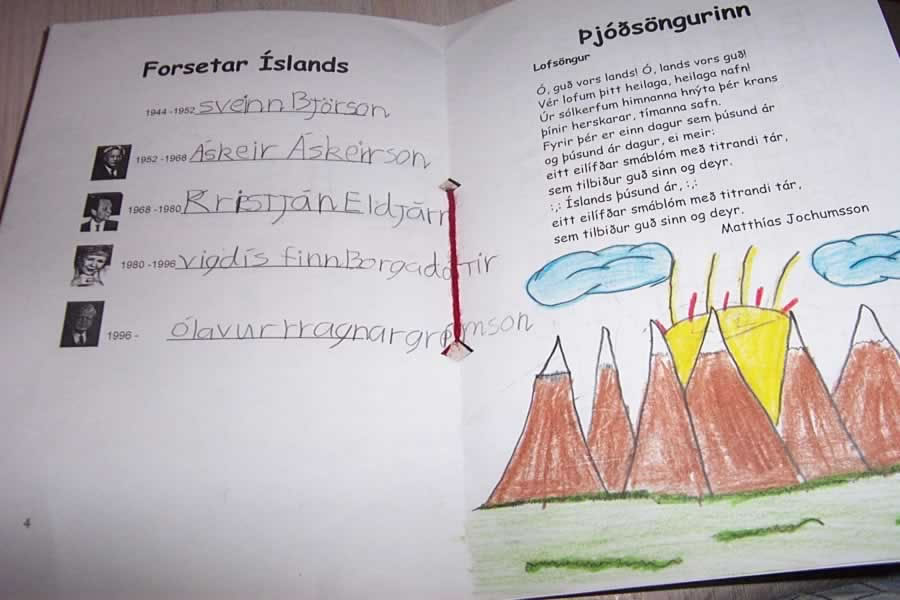 Forsetar Íslands
1944 -1952 sveinn Björson
1952 -1968 Áskeir Áskeirson
1968 -1980 Kristján Eldjárr
1980 -1996 vigdís finnBorgadóttir
1996 - ólavurrragnargrímson
4
Þjóðsöngurinn
Lofsöngur
Ó, guð vors lands! Ó, lands vors guð!
Vér lofum þitt heilaga, heilaga nafn!
Úr sólkerfum himnanna hnýta þér krans
þínir herskarar, tímanna safn.
Fyrir þér er einn dagur sem þúsund ár
og þúsund ár dagur, ei meir:
eitt eilífðar smáblóm með titrandi tár,
sem tilbiður guð sinn og deyr.
:,: Íslands þúsund ár, :,:
eitt eilífðar smáblóm með titrandi tár,
sem tilbiður guð sinn og deyr.
Matthías Jochumsson